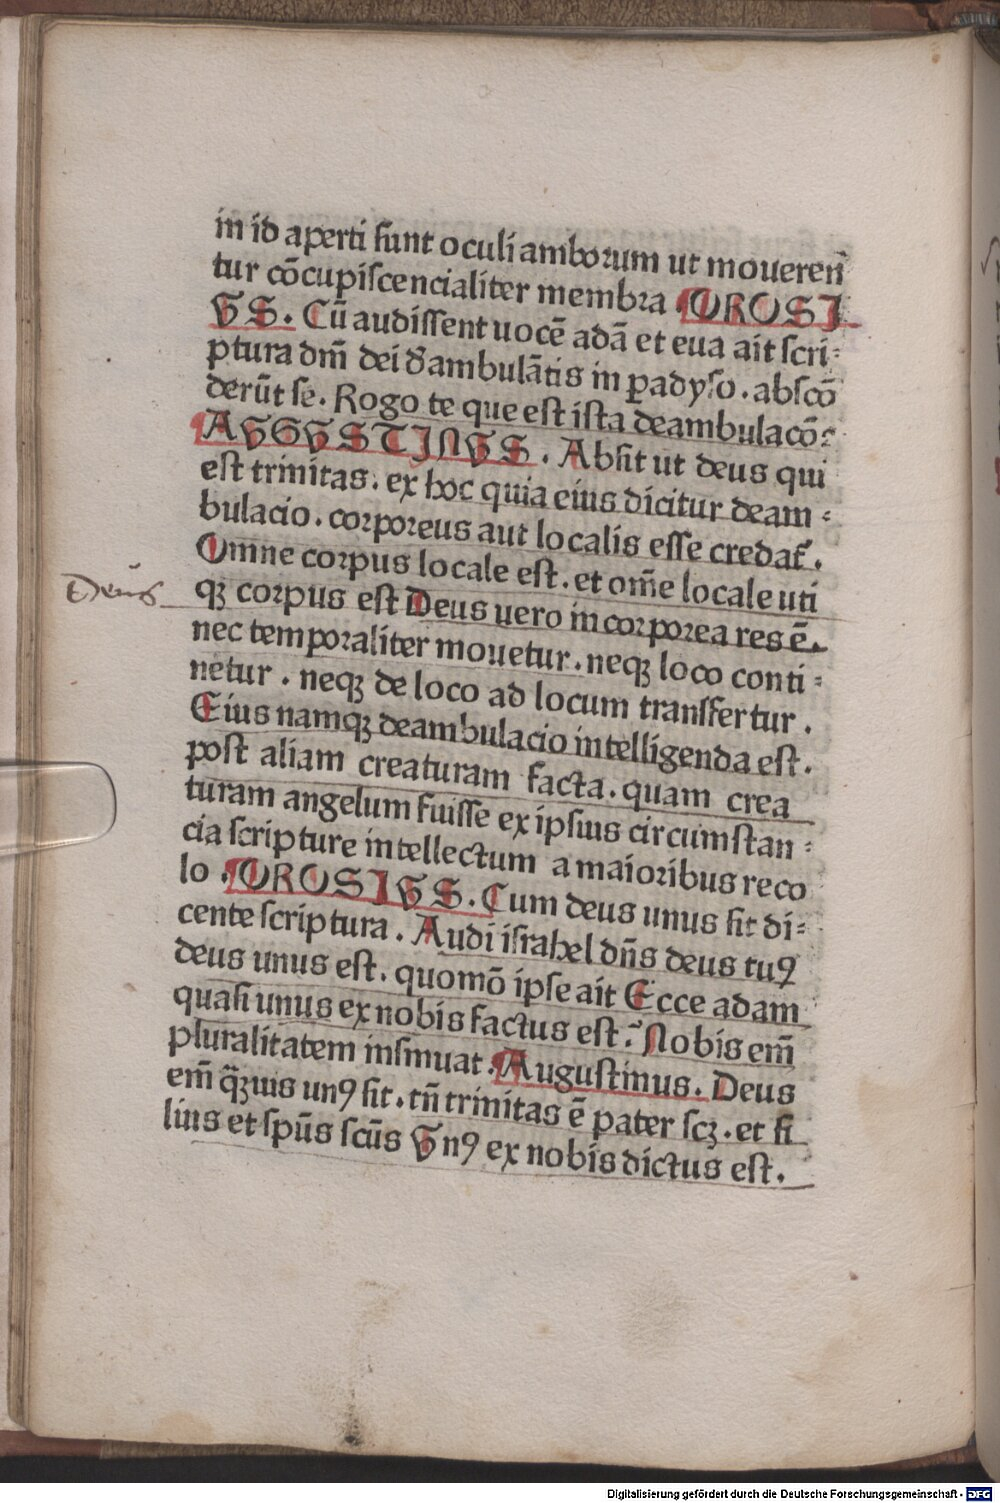 in id aperti sunt oculi amborum ut moueren̄
tur cōcupiscencialiter membra . OROSI
VS . Cū audissent uocē adā et eua ait scri⸗
ptura dm̄ dei d̄ambulātis in ꝑadyso . abscō
derūt se . Rogo te que est ista deambulacō?
AVGVSTINVS . Absit ut deus qui
est trinitas . ex hoc quia eius dicitur deam⸗
bulacio . corporeus aut localis esse credat̄ .
Omne corpus locale est . et om̄e locale uti
Deus
qꝫ corpus est Deus uero incorporea res ē .
nec temporaliter mouetur . neqꝫ loco conti⸗
netur . neqꝫ de loco ad locum transfertur .
Eius namqꝫ deambulacio intelligenda est .
post aliam creaturam facta . quam crea
turam angelum fuisse ex ipsius circumstan⸗
cia scripture intellectum a maioribus reco
lo . OROSIVS . Cum deus unus sit di⸗
cente scriptura . Audi israhel dn̄s deus tuꝰ
deus unus est . quomō ipse ait Ecce adam
quasi unus ex nobis factus est ? Nobis em̄
pluralitatem insinuat . Augustinus . Deus
em̄ q̄ꝫuis unꝰ sit . tn̄ trinitas ē pater scꝫ . et fi
lius et spūs scūs Vnꝰ ex nobis dictus est .
Digitalisierung gefördert durch die Deutsche Forschungsgemeinschaft - DFG